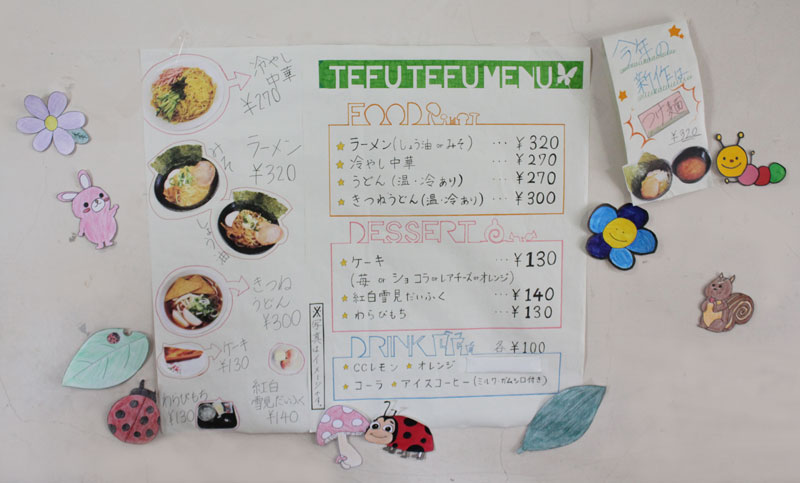 冷やし
中華
¥270
ラーメン
¥320
みそ
しょうゆ
きつね
うどん
¥300
ケーキ
¥130
わらびもち
¥130
紅白
雪見だいふく
¥140
※写真はイメージです。
TEFUTEFU MENU
FOOD
★ラーメン(しょう油 or みそ) … ¥320
★冷やし中華 … ¥270
★うどん(温・冷あり) … ¥270
★きつねうどん(温・冷あり) … ¥300
DESSERT
★ケーキ … ¥130
(苺 or ショコラ or レアチーズ or オレンジ)
★紅白雪見だいふく … ¥140
★わらびもち … ¥130
DRINK 各¥100
★CCレモン ★オレンジ
★コーラ ★アイスコーヒー(ミルク・ガムシロ付き)
今年の
新作品
つけ麺
¥320